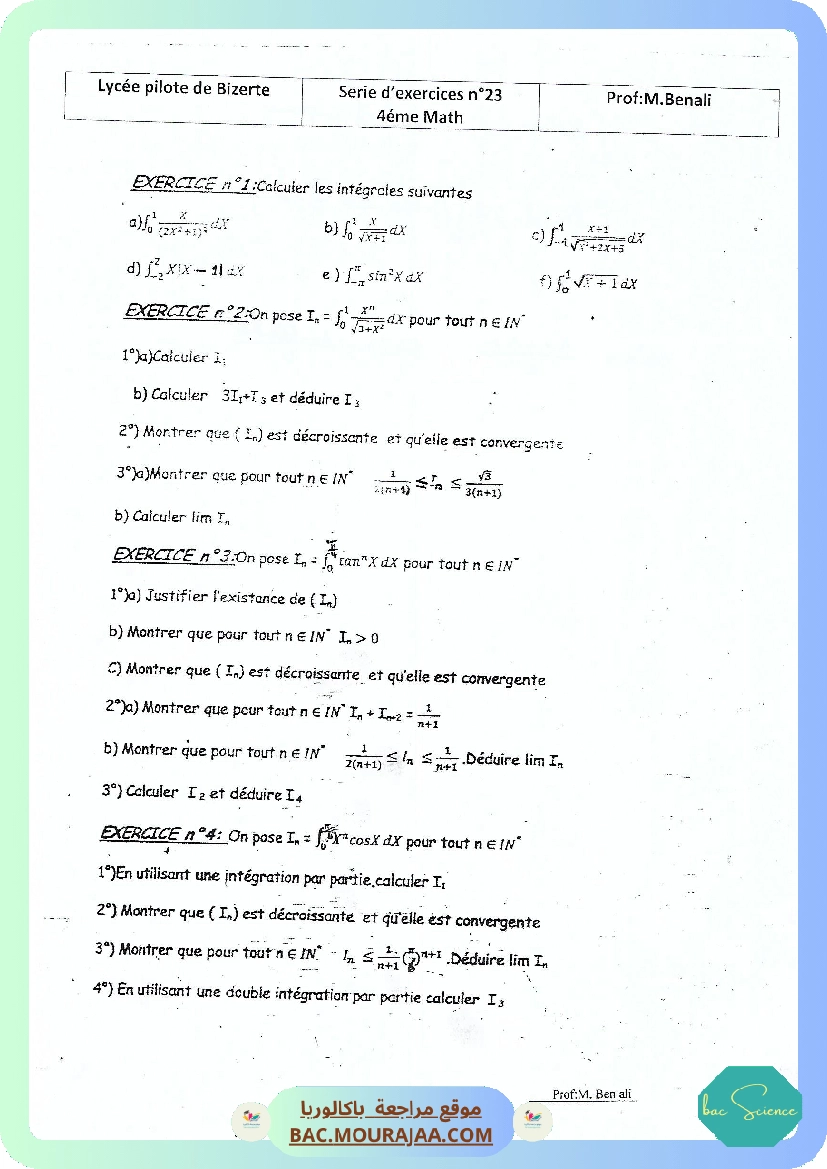 Lycée pilote de Bizerte
Serie d'exercices n°23
4éme Math
Prof:M.Benali
EXERCICE n°1:Calculer les intégrales suivantes
a)∫₀¹ X/(2X²+1)² dX b) ∫₀¹ X/√(X+1) dX c) ∫₋₁¹ (X+1)/√(X²+2X+5) dX
d) ∫₋₂² X|X − 1| dX e ) ∫₋π^π sin²X dX f) ∫₀¹ √(X + 1) dX
EXERCICE n°2:On pose Iₙ = ∫₀¹ Xⁿ/√(3+X²) dX pour tout n ∈ IN*
1°)a)Calculer I₁
b) Calculer 3I₁+I₃ et déduire I₃
2°) Montrer que ( Iₙ) est décroissante et qu'elle est convergente
3°)a)Montrer que pour tout n ∈ IN* 1/(2(n+1)) ≤ Iₙ ≤ √3/(3(n+1))
b) Calculer lim Iₙ
EXERCICE n°3:On pose Iₙ = ∫₀ tanⁿX dX pour tout n ∈ IN*
1°)a) Justifier l'existance de ( Iₙ)
b) Montrer que pour tout n ∈ IN* Iₙ > 0
C) Montrer que ( Iₙ) est décroissante et qu'elle est convergente
2°)a) Montrer que pour tout n ∈ IN* Iₙ + Iₙ₊₂ = 1/(n+1)
b) Montrer que pour tout n ∈ IN* 1/(2(n+1)) ≤ Iₙ ≤ 1/(n+1) .Déduire lim Iₙ
3°) Calculer I₂ et déduire I₄
EXERCICE n°4: On pose Iₙ = ∫₀ Xⁿcos X dX pour tout n ∈ IN*
1°)En utilisant une intégration par partie,calculer I₁
2°) Montrer que ( Iₙ) est décroissante et qu'elle est convergente
3°) Montrer que pour tout n ∈ IN* Iₙ ≤ 1/(n+1) ( )ⁿ⁺¹ .Déduire lim Iₙ
4°) En utilisant une double intégration par partie calculer I₃
Prof:M. Ben ali
bac Science
موقع مراجعة باكالوريا
BAC.MOURAJAA.COM